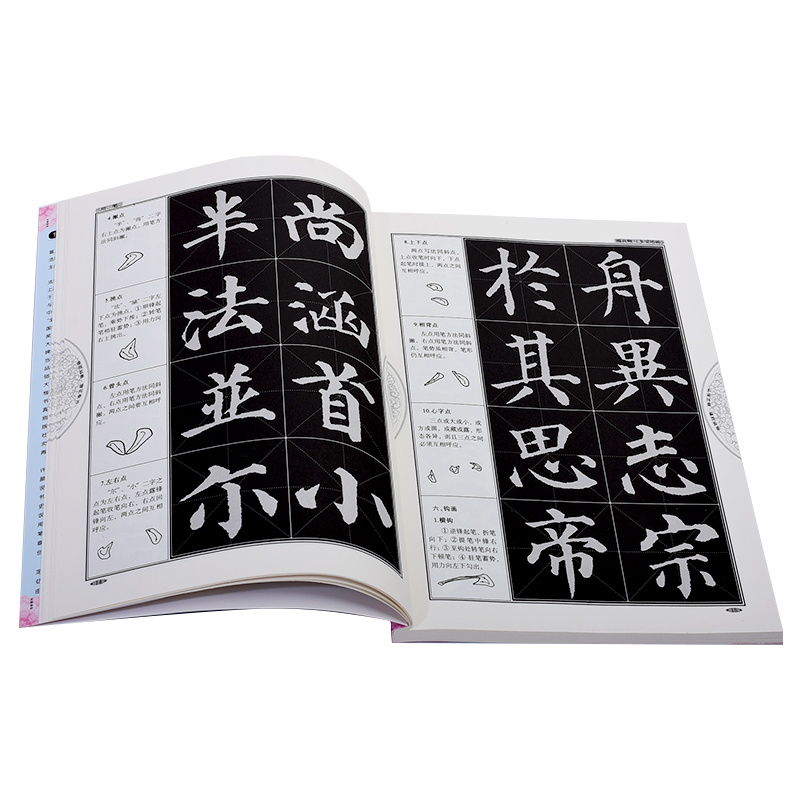 4.撇点
"半"、"尚"二字
右上点为撇点，用笔方
法同斜撇。
半 尚
5.挑点
"法"、"涵"二字左
下点为挑点。①顺锋起
笔，重势下按；②转笔
笔梢驻蓄势；③用力向
右上挑出。
法 涵
6.骨头点
左点用笔方法同斜
点，右点用笔方法同斜
撇，两点之间要互相呼
应。
並 首
7.左右点
"尔"、"小"二字之
点为左右点，左点露锋
起笔收笔向右，右点回
锋向左，两点之间互相
呼应。
尔 小
8.上下点
两点写法同斜点，
上点收笔时向下，下点
起笔时接上，两点之间
互相呼应。
於 舟
9.相背点
左点用笔方法同斜
撇，右点用笔方法同斜
点，笔势虽相背，笔形
仍互相呼应。
其 異
10.心字点
三点或大或小，或
方或圆，或藏或露，形
态各异，而且三点之间
必须互相呼应。
思 志
六、钩画
1.横钩
①逆锋起笔，折笔
向下；②提笔中锋右
行；③至钩处转笔向右
下顿笔；④驻笔蓄势，
用力向左下勾出。
帝 宗